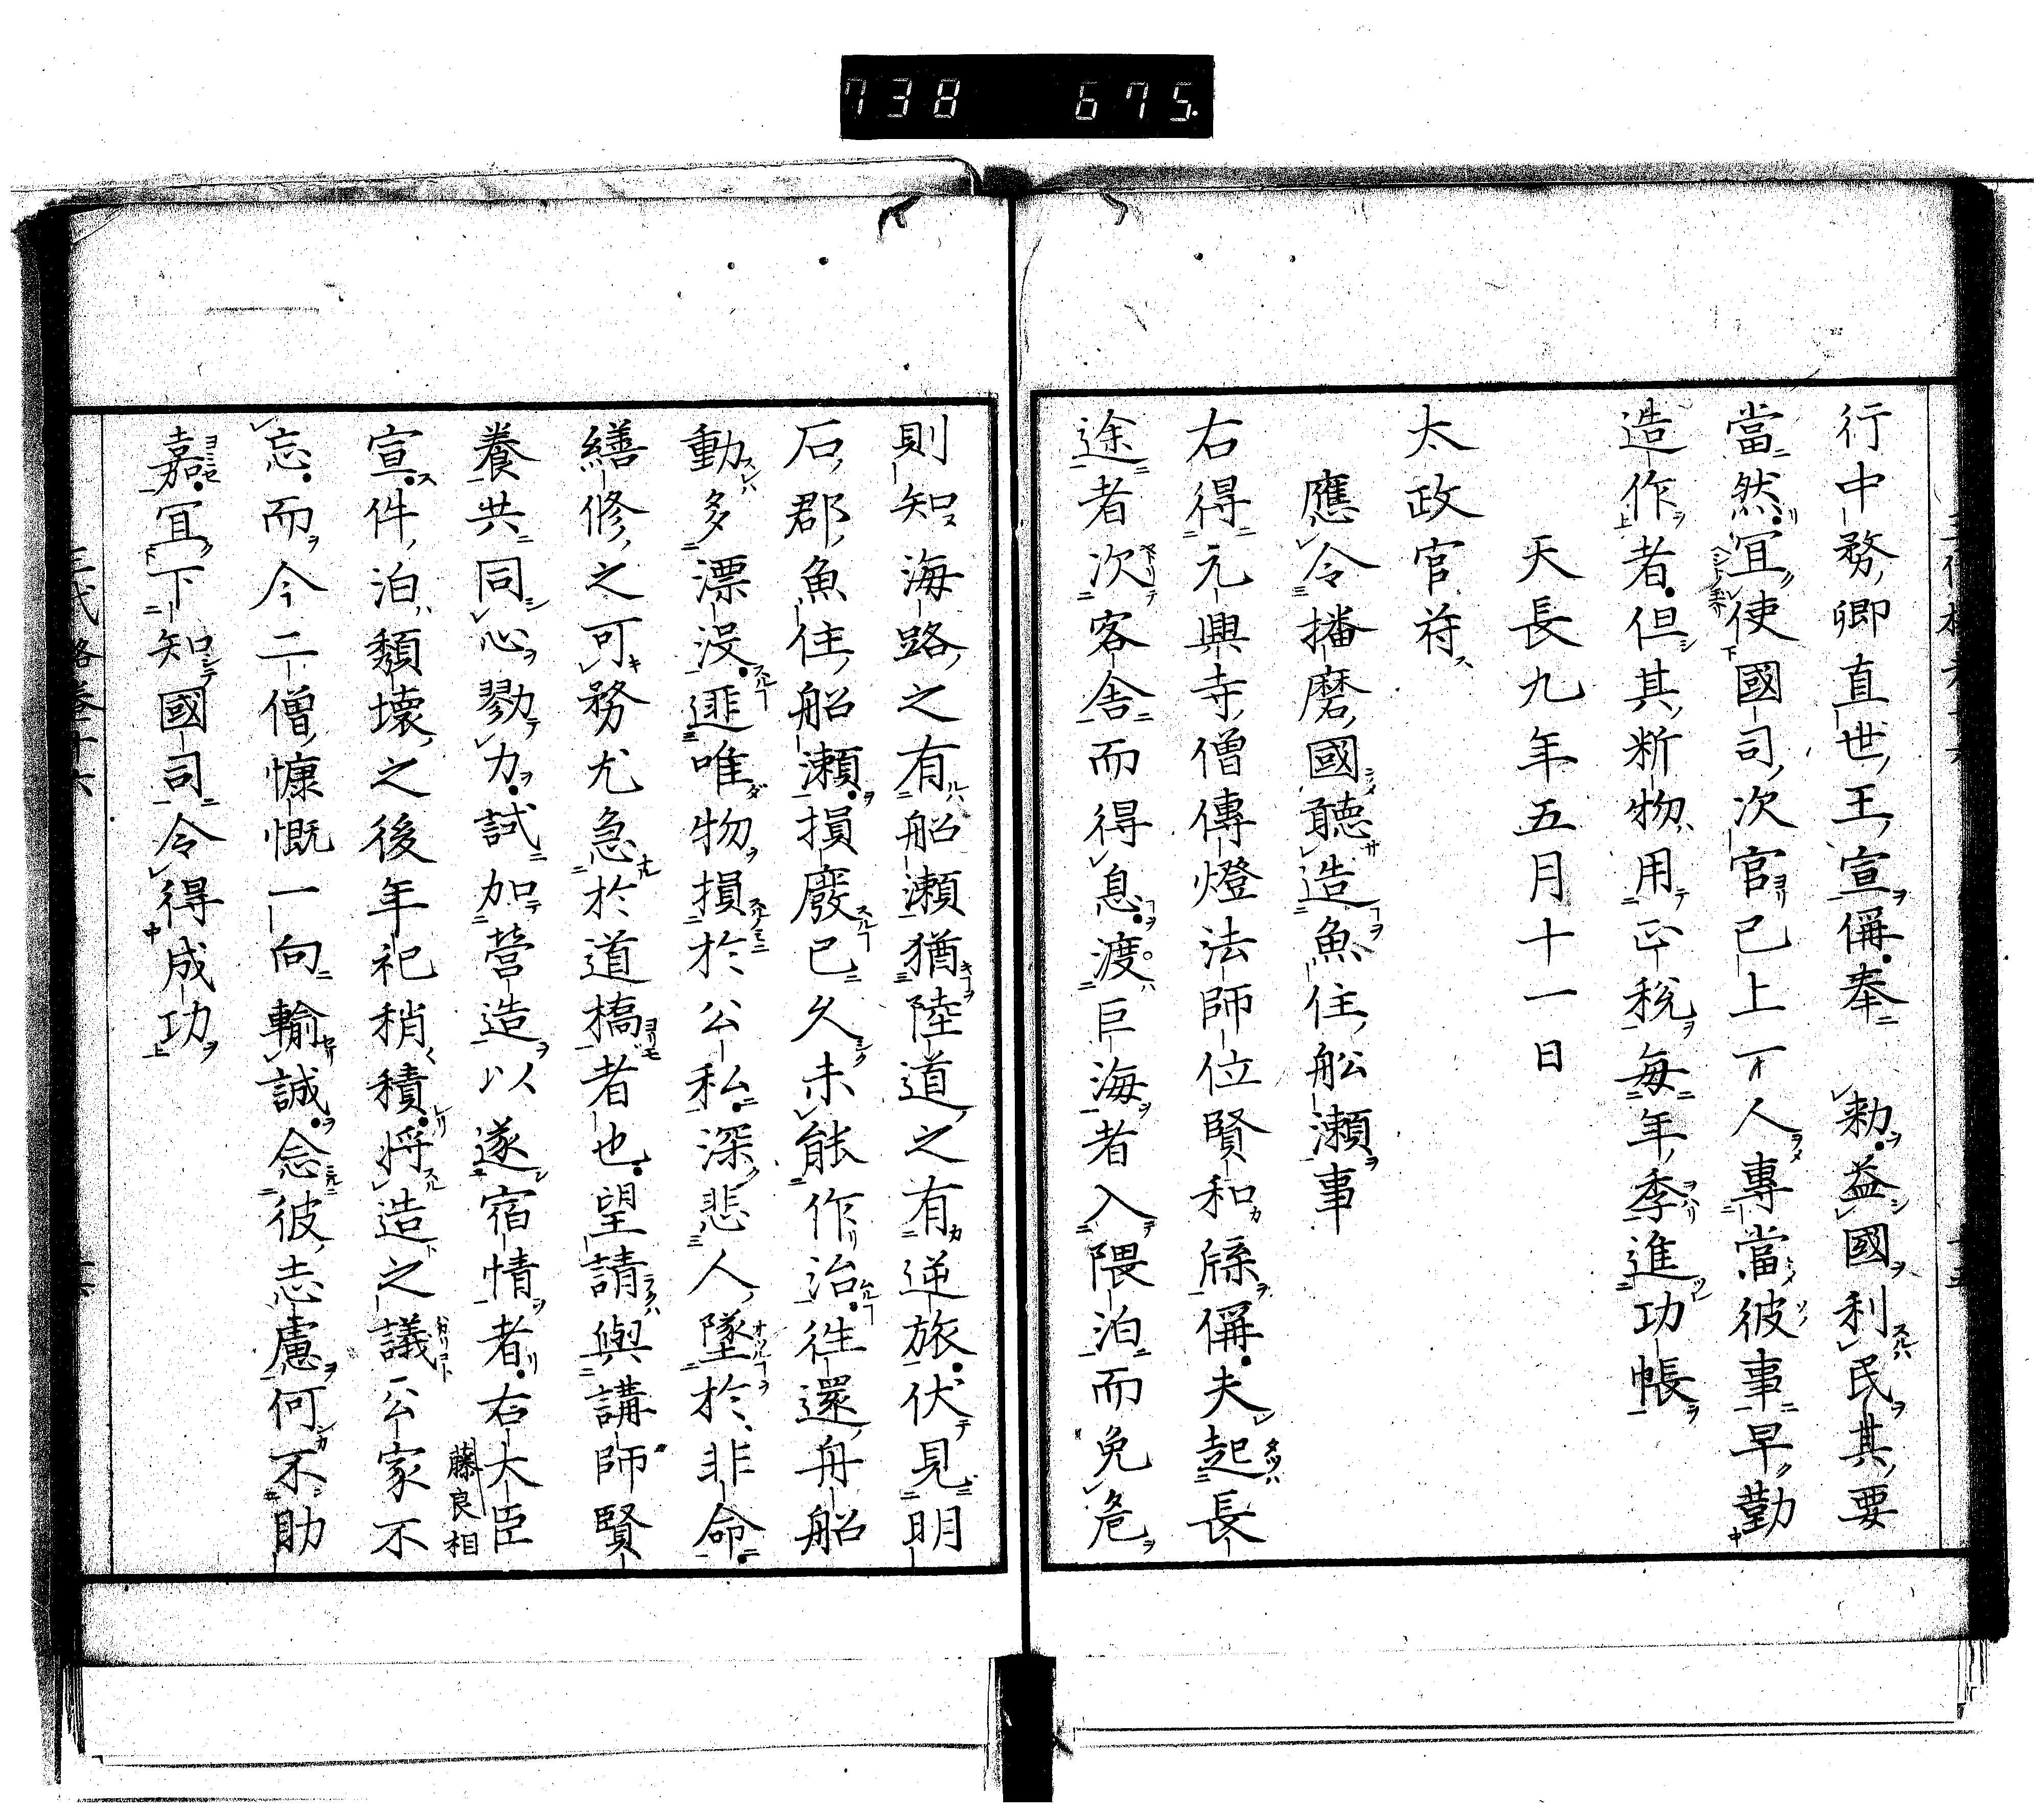 738 675
行中務卿直世王宣偁奉 勅益國利民其要
當然冝使國司次官已上一人專當彼事早勤
造作者但其斯物用正税毎年季進功帳
天長九年五月十一日
太政官符
應令播磨國聽造魚住舩瀬事
右得元興寺僧傳燈法師位賢和牒偁夫起長
途者次客舎而得息渡巨海者入隈泊而免危
則知海路之有船瀬猶陸道之有逆旅伏見明
石郡魚住船瀬損廢已久未能作治往還舟船
動多漂没匪唯物損於公私深悲人墜於非命
繕修之可務尤急於道橋者也望請與講師賢
養共同心勠力試加營造以遂宿情者右大臣
藤良相
宣件泊頽壊之後年祀稍積将造之議公家不
忘而今二僧慷慨一向輸誠念彼志慮何不助
嘉冝下知國司令得成功